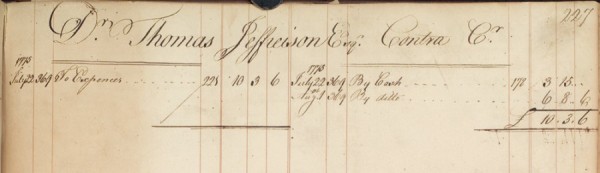 227
Dr. Thomas Jefferson Esqr. Contra Cr.
1773 1773
July 22 369 To Expences 221 10 3 6 July 22 369 By Cash 178 3 15
Augt 369 By ditto 6 8 6
£ 10 3 6